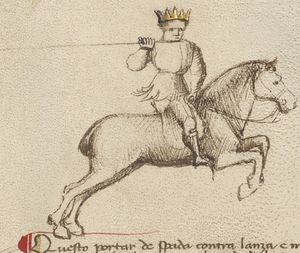 Questo portar de spada contra lanza e m